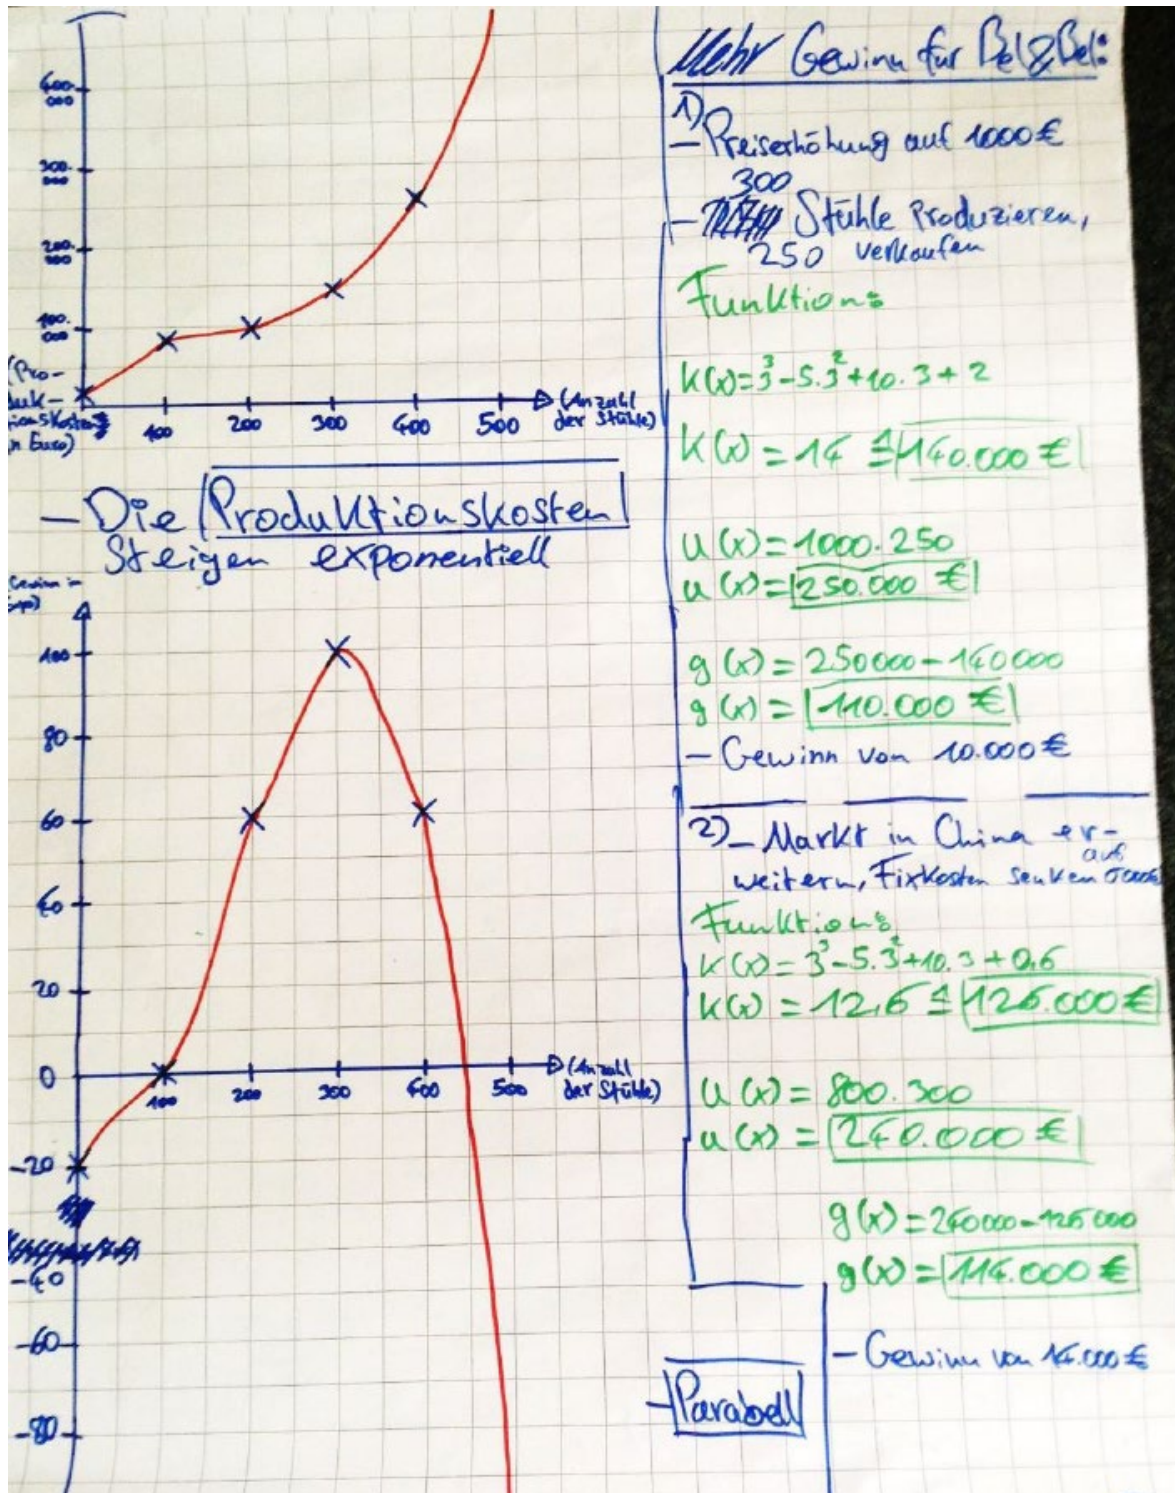 400.000
300.000
200.000
100.000
(Produktionskosten in Euro)
100 200 300 400 500 (Anzahl
der Stühle)
- Die Produktionskosten
Steigen exponentiell
(Gewinn in
100
80
60
40
20
0
-20
-40
-60
-80
100 200 300 400 500 (Anzahl
der Stühle)
Mehr Gewinn für Bel&Bel:
1)
- Preiserhöhung auf 1000 €
300
- Stühle Produzieren,
250 verkaufen
Funktion:
k(x)=3³-5·3²+10·3+2
k(x)=14 ≙ 140.000 €
u(x)=1000·250
u(x)=250.000 €
g(x)=250000-140000
g(x)=110.000 €
- Gewinn von 10.000 €
2) - Markt in China er-
weitern, Fixkosten senken auf
Funktion:
k(x)=3³-5·3²+10·3+0,6
k(x)=12,6 ≙ 126.000 €
u(x)=800·300
u(x)=240.000 €
g(x)=240000-126000
g(x)=114.000 €
- Gewinn von 14.000 €
- Parabell